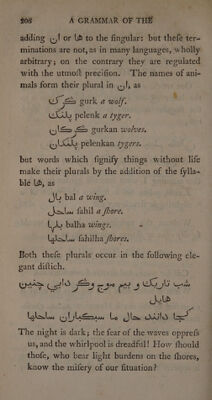 208 A GRAMMAR OF THE
adding ان or ها to the singular: but theſe ter-
minations are not, as in many languages, wholly
arbitrary; on the contrary they are regulated
with the utmoſt preciſion. The names of ani-
mals form their plural in ان, as
گرک gurk a wolf.
پلنک pelenk a tyger.
گرکان gurkan wolves.
پلنکان pelenkan tygers.
but words which ſignify things without life
make their plurals by the addition of the ſylla-
ble ها, as
بال bal a wing.
ساحل ſahil a ſhore.
بالها balha wings.
ساحلها ſahilha ſhores.
Both theſe plurals occur in the following ele-
gant diſtich.
شب تاریک و بیم موج و گردابی چنین
هایل
کجا دانند حال ما سبکباران ساحلها
The night is dark; the fear of the waves oppreſs
us, and the whirlpool is dreadful! How ſhould
thoſe, who bear light burdens on the ſhores,
know the miſery of our ſituation?